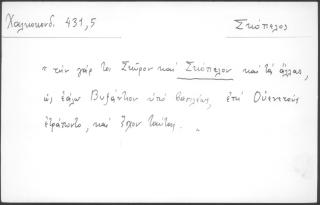 Χαλκοκονδ. 431,5
Σκόπελος
" τὴν γάρ τοι Σκῦρον καὶ Σκόπελον καὶ τὰς ἄλλας,
ὡς ἑάλω Βυζάντιον ὑπὸ βασιλέως, ἐπὶ Οὐενετοὺς
ἐτράποντο, καὶ ἔσχον ταύτας. "